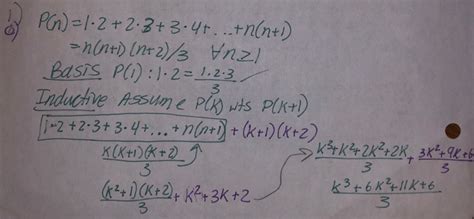 1)
a) P(n) = 1·2 + 2·3 + 3·4 + ... + n(n+1)
= n(n+1)(n+2)/3 ∀n≥1
Basis P(1): 1·2 = 1·2·3/3 ✓
Inductive Assume P(k) wts P(k+1)
1·2 + 2·3 + 3·4 + ... + n(n+1) + (k+1)(k+2)
k(k+1)(k+2)/3
(k²+1)(k+2)/3 + k²+3k+2
k³+k²+2k²+2k/3 + 3k²+9k+6/3
k³+6k²+11k+6/3